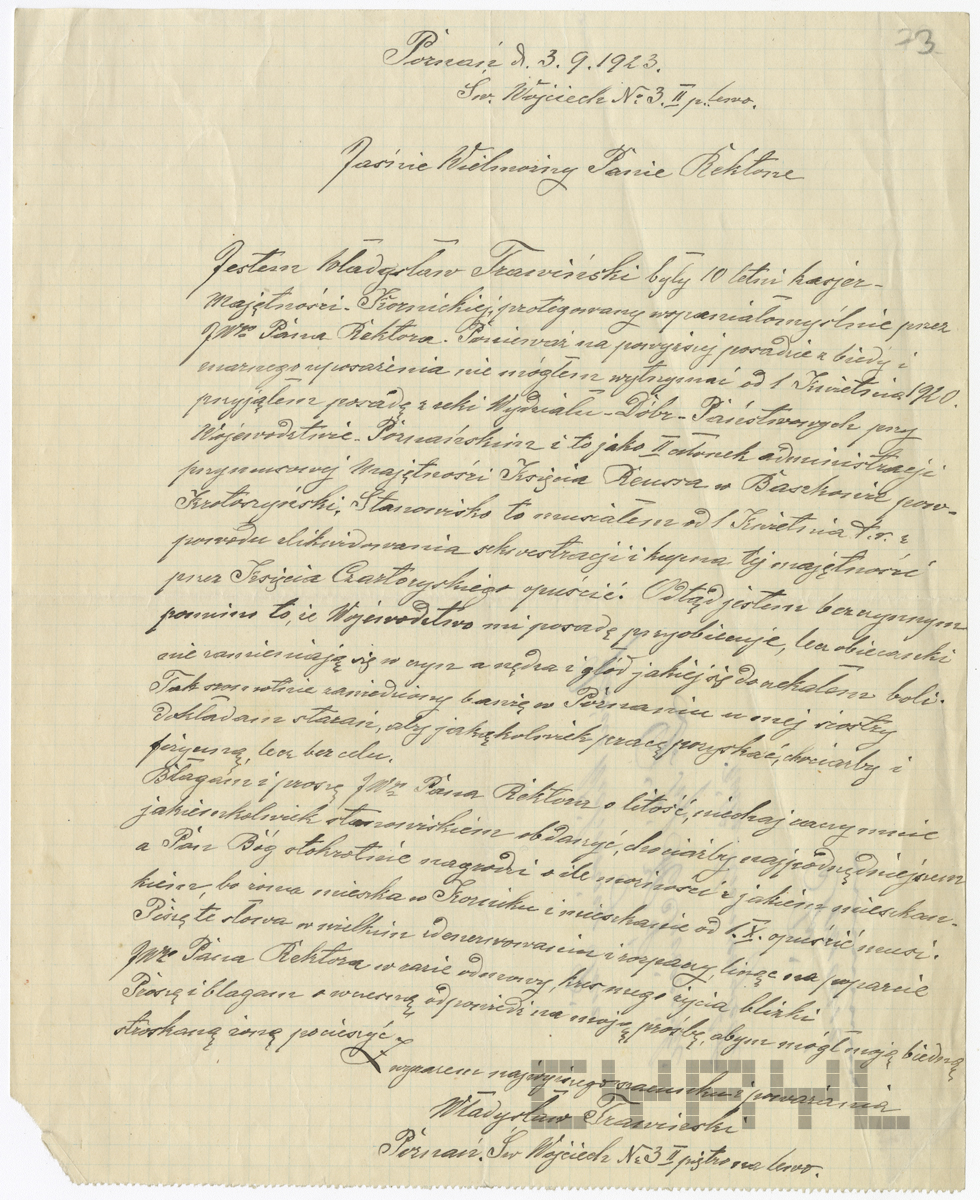 73
Poznań d. 3. 9. 1923.
Św. Wojciech No 3. II p. lewo.
Jaśnie Wielmożny Panie Rektorze
Jestem Władysław Trawiński były 10 letni kasjer
Majętności - Kórnickiej, protegowany wspaniałomyślnie przez
JWgo Pana Rektora. Ponieważ na powyższej posadzie z biedy i
marnego uposażenia nie mógłem wytrzymać od 1 Kwietnia 1920.
przyjąłem posadę z ręki Wydziału - Dóbr - Państwowych przy
Województwie - Poznańskim i to jako II członek administracji
przymusowej Majętności Księcia Reussa w Baszkowie pow-
Krotoszyński. Stanowisko to musiałem od 1 Kwietnia t. r. z
powodu zlikwidowania sekwestracji i kupna tej majętność
przez Księcia Czartoryskiego opuścić. Odtąd jestem bezczynnym
pomimo to, że Województwo mi posadę przyobiecuje, lecz obiecanki
nie zamieniają się w czyn a nędza i głód jakiej się doczekałem boli.
Tak sromotnie zaniedbany bawię w Poznaniu u mej siostry
dokładam starań, aby jakąkolwiek pracę pozyskać, chociażby i
fizyczną, lecz bez celu.
Błagam i proszę JWgo Pana Rektora o litość, niechaj raczy mnie
jakiemkolwiek stanowiskiem obdarzyć, chociażby najpodrzędniejszem
a Pan Bóg stokrotnie nagrodzi o ile możności z jakiem mieszkan-
kiem, bo żona mieszka w Kórniku i mieszkanie od 1. X. opuścić musi.
Piszę te słowa w wielkim zdenerwowaniu i rozpaczy, licząc na poparcie
JWgo Pana Rektora w razie odmowy, kres mego życia blizki
Proszę i błagam o wczesną odpowiedź na moją prośbę, abym mógł moją biedną
stroskaną żonę pocieszyć.
Z wyrazem najwyższego szacunku i poważania
Władysław Trawiński
Poznań. Św Wojciech No 3 II piętro na lewo.